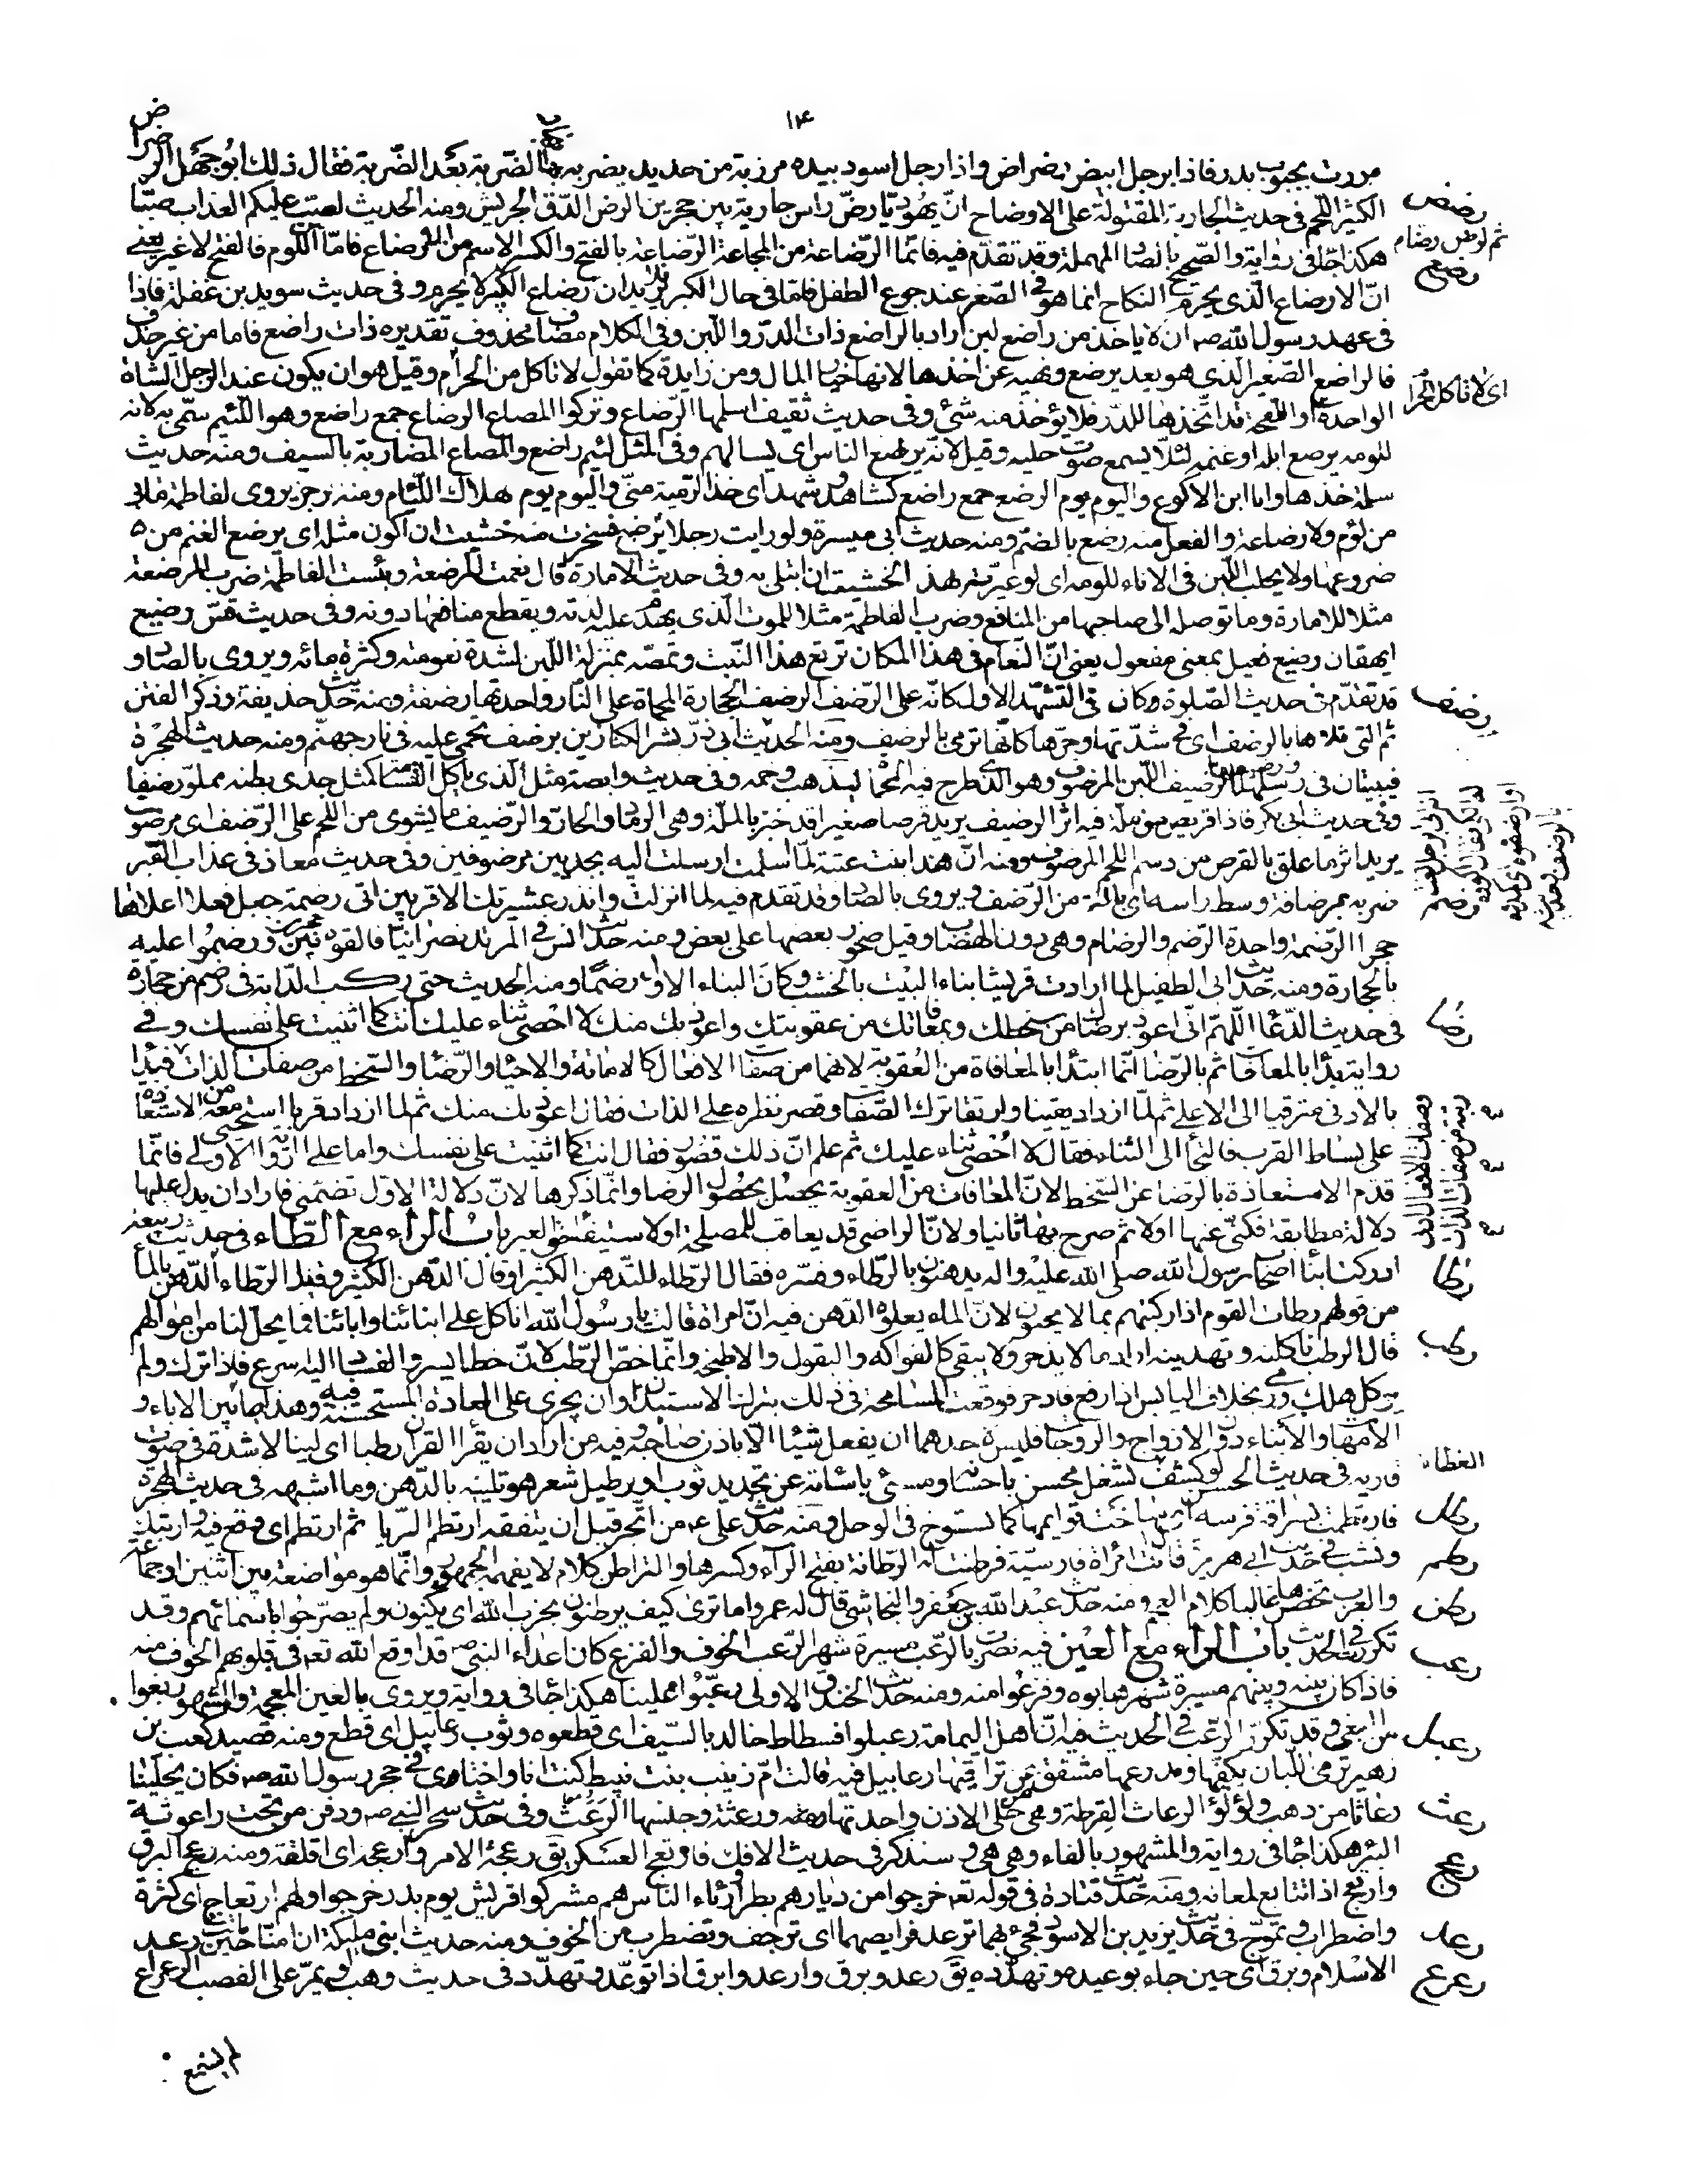 ١٤
مررت بجبوب بدر فاذا برجل ابيض رضراض واذا رجل اسود بيده مرزبة من حديد يضربه بها الضربة بعد الضّربة فقال ذلك ابو جهل الرضراض
رضض
الكثير اللحم فى حديث الجارية المقتولة على الاوضاح انّ يهوديّا رضّ راس جارية بين حجرين الرض الدّق الجريش ومنه الحديث لصبّ عليكم العذاب صبّا
ثم لرضّ رضّا
هكذا جا فى رواية والصّحيح بالصاد المهملة وقد تقدّم فيه فانّما الرّضاعة من المجاعة الرّضاعة بالفتح والكسر الاسم من الارضاع فامّا اللوم فالفتح لا غير يعنى
رضع
انّ الارضاع الّذى يحرم النكاح انما هو فى الصّغر عند جوع الطفل فامّا فى حال الكبر فلا يريد ان رضاع الكبير لا يحرم وفى حديث سويد بن غفلة فاذا
فى عهد رسول الله ص ان لا ياخذ من راضع لبن اراد بالراضع ذات الدّر واللّبن وفى الكلام مضاف محذوف تقديره ذات راضع فاما من غير حذف
فالراضع الصّغير الذى هو بعد يرضع ونهيه عن اخذها لانها خيار المال ومن زايدة كما تقول لا تاكل من الحرام وقيل هو ان يكون عند الرجل الشاة
اى لا تاكل الحرام
الواحدة او اللقحة قد اتّخذها للدّر فلا يؤخذ منه شئ وفى حديث ثقيف اسلمها الرّضاع وتركوا المصاع الرضاع جمع راضع وهو اللئيم سمّى به لانه
للؤمه يرضع ابله او غنمه لئلّا يسمع صوت حلبه وقيل لانّه يرضع الناس اى يسالهم وفى المثل لئيم راضع والمصاع المضاربة بالسيف ومنه حديث
سلمة خذها وانا ابن الاكوع واليوم يوم الرضع جمع راضع كشاهد وشهد اى خذ الرّمية منّى واليوم يوم هلاك اللّئام ومنه رجز يروى لفاطمة ما بى
من لؤم ولا رضاعة والفعل منه رضع بالضم ومنه حديث ابى ميسرة ولو رايت رجلا يرضع فسخرت منه خشيت ان اكون مثله اى يرضع الغنم من
ضروعها ولا يحلب اللّبن فى الاناء للؤمه اى لو عيّرته بهذا لخشيت ان ابتلى به وفى حديث الامارة قال نعمت المرضعة وبئست الفاطمة ضرب المرضعة
مثلا للامارة وما توصله الى صاحبها من المنافع وضرب الفاطمة مثلا للموت الّذى يهدم عليه لذته ويقطع منافعها دونه وفى حديث قسّ رضيع
ايهقان رضيع فعيل بمعنى مفعول يعنى انّ النعام فى هذا المكان ترتع هذا النّبت وتمصّه بمنزلة اللّبن لشدة نعومته وكثرة مائه ويروى بالصاد و
رضف
قد تقدّم فى حديث الصّلوة وكان فى التشهّد الاول كانّه على الرّضف الرضف الحجارة المحماة على النّار واحدتها رضفة ومنه حديث حذيفة وذكر الفتن
ثم التى تليها بالرضف اى فى شدّتها وحرّها كانّها ترمى بالرضف ومنه الحديث ابى ذرّ بشر الكنازين برضف يحمى عليه فى نار جهنّم ومنه حديث الهجرة
فيبيتان فى رسلها ورضيفها الرضيف اللّبن المرضوف وهو الّذى طرح فيه الحجارة المحماة ليذهب وخمه وفى حديث وابصة مثل الّذى ياكل القسامة كمثل جدى بطنه مملوّ رضفا
وفى حديث ابى بكر فاذا قريص من ملّة فيه اثر الرضيف يريد قرصا صغيرا قد خبز بالملّة وهى الرماد الحارّ والرّضيف ما يشوى من اللحم على الرّضف اى مرضوف
يريد اثر ما علق بالقرص من دسم اللحم المرضوف ومنه انّ هندا بنت عتبة لمّا اسلمت ارسلت اليه بجديين مرضوفين وفى حديث معاذ فى عذاب القبر
رضم
ضربه بمرضافة وسط راسه اى بالة من الرّضف ويروى بالصاد وقد تقدم فيه لما انزلت وانذر عشيرتك الاقربين اتى رضمة جبل فعلا اعلاها
حجرا الرّضمة واحدة الرّضم والرضام وهى دون الهضاب وقيل صخور بعضها على بعض ومنه حديث انس فى المرتد نصرانيّا فالقوه بين حجرين ورضموا عليه
بالحجارة ومنه حديث ابى الطفيل لما ارادت قريش بناء البيت بالخشب وكان البناء الاول رضمًا ومنه الحديث حتى ركب الدّابة فى رضم من حجارة
رضا
فى حديث الدّعا اللّهمّ انّى اعوذ برضاك من سخطك وبمعافاتك من عقوبتك واعوذ بك منك لا احصى ثناء عليك انت كما اثنيت على نفسك وفى
رواية بدأ بالمعافاة ثم بالرّضا انّما ابتدا بالمعافاة من العقوبة لانهما من صفات الافعال كالاماتة والاحياء والرّضا والسّخط من صفات الذات فبدا
بالادنى مترقيا الى الاعلى ثم لمّا ازداد يقينا وارتقا ترك الصّفات وقصر نظره على الذات فقال اعوذ بك منك ثم لما ازداد قربا استحيى معه من الاستعاذة
على بساط القرب فالتجا الى الثناء فقال لا احصى ثناء عليك ثم علم انّ ذلك قصور فقال انت كما اثنيت على نفسك واما على الرواية الاولى فانّما
قدّم الاستعاذة بالرّضا عن السّخط لانّ المعافات من العقوبة يحصل بحصول الرضا وانّما ذكرها لانّ دلالة الاول تضمّنى فاراد ان يدل عليها
دلالة مطابقة فكنّى عنها اولا ثم صرح بها ثانيا ولانّ الراضى قد يعاقب للمصلحة او لاستيفاء حق الغير باب الراء مع الطّاء فى حديث ربيعة
رطا
ادركت ابناء اصحاب رسول الله صلى الله عليه واله يدهنون بالرّطاء وفسّره فقال الرّطاء للتدهن الكثير او قال الدّهن الكثير وقيل الرّطاء الدّهن بالماء
من قولهم رطات القوم اذا ركبتهم بما لا يحبون لانّ الماء يعلوه الدّهن فيه انّ امراة قالت يا رسول الله انا كل على ابنائنا وابائنا فما يحلّ لنا من اموالهم
رطب
قال الرطب تاكلنه وتهدينه اراد ما لا يدخر ولا يبقى كالفواكه والبقول والاطبخة وانّما خصّ الرّطب لانّ خطبه ايسر والفساد اليه اسرع فاذا ترك ولم
يؤكل هلك ورمى بخلاف اليابس اذا رفع وادخر فوقعت المسامحة فى ذلك بترك الاستيذان وان يجرى على العادة المستحسنة فيه وهذا فيما بين الاباء و
الامهات والابناء دون الازواج والزوجات فليس لاحدهما ان يفعل شيئا الّا باذن صاحبه وفيه من اراد ان يقرأ القرآن رطبا اى لينا لا شدّة فى صوت
قاريه فى حديث الحسن لو كشف الغطاء لشغل محسن باحسانه ومسئ باسائته عن تجديد ثوب او ترطيل شعر هو تليينه بالدّهن وما اشبهه فى حديث الهجرة
رطل
فارتطمت بسراقة فرسه اى ساخت قوايمها كما تسوخ فى الوحل ومنه حديث على ع من اتّجر قبل ان يتفقه ارتطم الربا ثم ارتطم اى وقع فيه وارتبك
رطم
ونشب فى حديث ابى هريرة قال اتت امراة فارسيّة فرطنت له الرّطانة بفتح الرّاء وكسرها والتراطن كلام لا يفهمه الجمهور وانّما هو مواضعة بين اثنين او جماعة
رطن
والعرب تخصّ بها غالبا كلام العجم ومنه حديث عبد الله بن جعفر والنجاشى قال له عمرو اما ترى كيف يرطنون بحزب الله اى يكنون ولم يصرّحوا باسمائهم وقد
رعب
تكرر فى الحديث باب الراء مع العين فيه نصرت بالرّعب مسيرة شهر الرّعب الخوف والفزع كان اعداء النبى ص قد اوقع الله تعه فى قلوبهم الخوف منه
فاذا كان بينه وبينهم مسيرة شهر هابوه وفزعوا منه ومنه حديث الخندق ان الاولى رعّبوا علينا هكذا جا فى رواية ويروى بالغين المعجمة والمشهور بغوا
رعبل
من البغى وقد تكرّر الرعب فى الحديث فيه انّ اهل اليمامة رعبلوا فسطاط خالد بالسّيف اى قطعوه وثوب رعابيل اى قطع ومنه قصيد كعب بن
زهير ترمى اللبان بكفّيها ومدرعها مشقق عن تراقيها رعابيل فيه قالت امّ زينب بنت نبيط كنت انا واختاى فى حجر رسول الله ص فكان يحلّينا
رعث
رعاثا من ذهب ولؤلؤ الرعاث القرطة وهى من حلى الاذن واحدتها رعثة ورعثة وجنسها الرّعث وفى حديث سحر النبى ص ودفن من تحت راعوثة
رعج
البئر هكذا جا فى رواية والمشهور بالفاء وهى هى وسنذكر فى حديث الافك فارتعج العسكر يق رعجه الامر وارعجه اى اقلقه ومنه رعج البرق
وارعج اذا تتابع لمعانه ومنه حديث قتادة فى قوله تعه خرجوا من ديارهم بطرا ورئاء الناس هم مشركوا قريش يوم بدر خرجوا ولهم ارتعاج اى كثرة
رعد
واضطراب وتموّج فى حديث يزيد بن الاسود فجئ بهما ترعد فرايصهما اى ترجف وتضطرب من الخوف ومنه حديث ابنى مليكة ان امّنا ماتت حين رعد
رعرع
الاسلام وبرق اى حين جاء بوعيده وتهدّده يق رعد وبرق وارعد وابرق اذا توعّد وتهدّد فى حديث وهب لو يمرّ على القصب الرعراع
لم يسمع